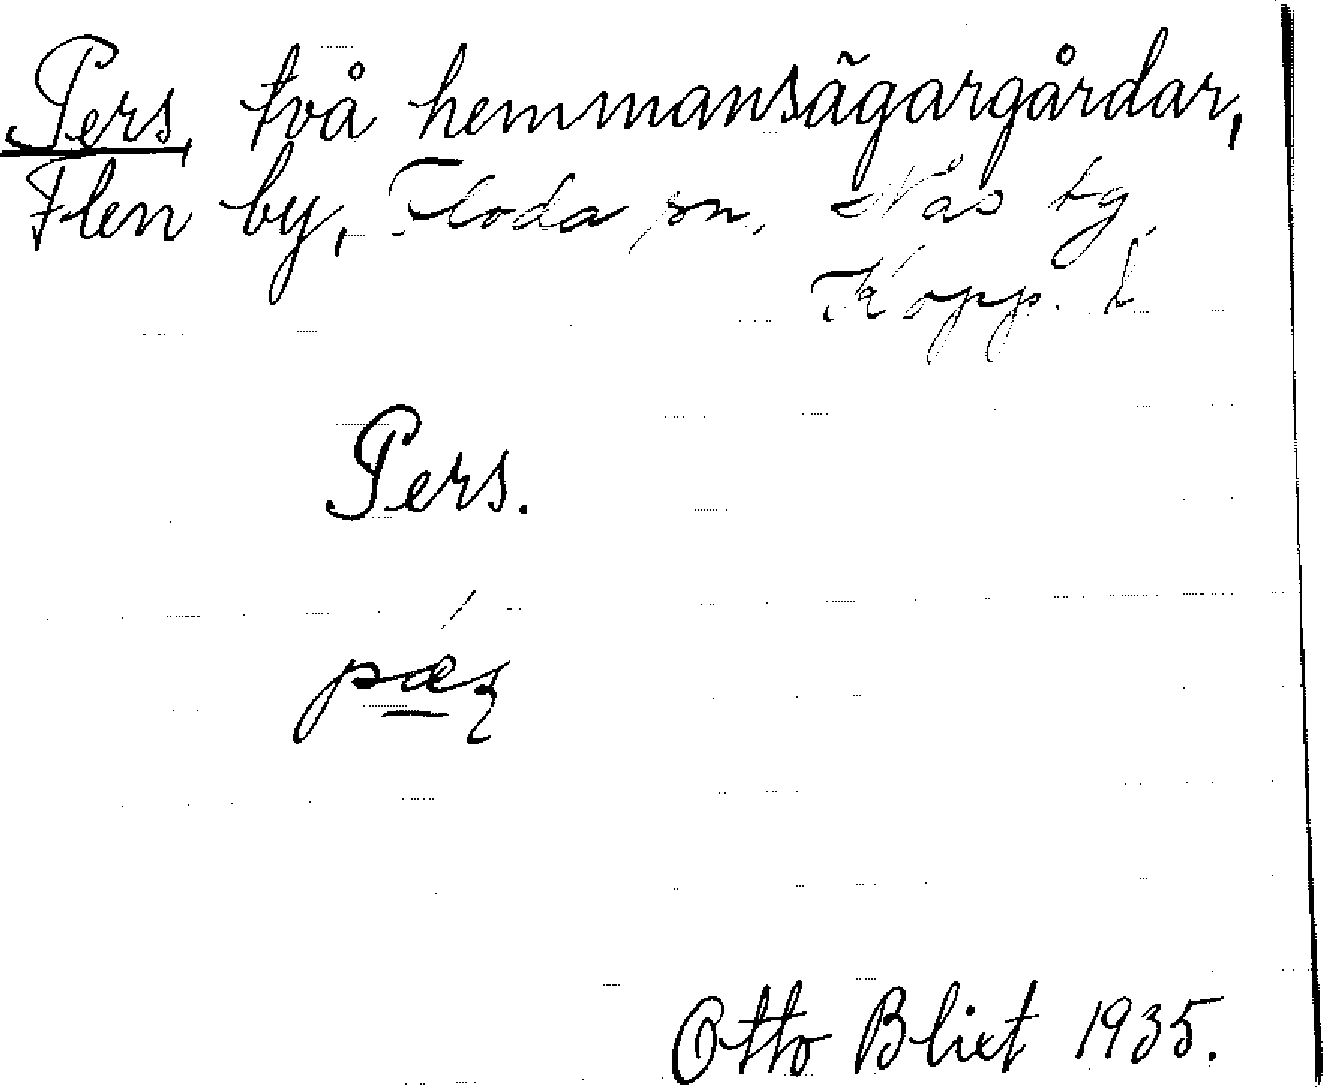 Pers, två hemmansägargårdar,
Flen by, Floda sn, Nås tg
Kopp. l.
Pers.
Otto Blixt 1935.